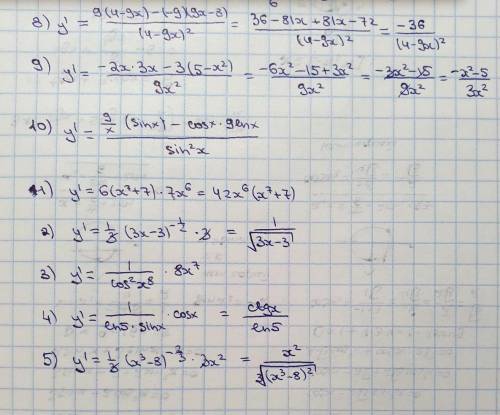 8) y' = (9(4-9x)-(-9)(9x-8))/(4-9x)² = (36-81x+81x-72)/(4-9x)² = -36/(4-9x)²
9) y' = (-2x·3x-3(5-x²))/9x² = (-6x²-15+3x²)/9x² = (-3x²-15)/9x² = (-x²-5)/3x²
10) y' = (9/x (sinx) - cosx·9lnx)/sin²x
1) y' = 6(x⁷+7)·7x⁶ = 42x⁶(x⁷+7)
2) y' = 1/2 (3x-3)^(-1/2) · 2 = 1/√(3x-3)
3) y' = 1/cos²x⁸ · 8x⁷
4) y' = 1/(ln5·sinx) · cosx = ctgx/ln5
5) y' = 1/3 (x³-8)^(-2/3) · 3x² = x²/∛((x³-8)²)